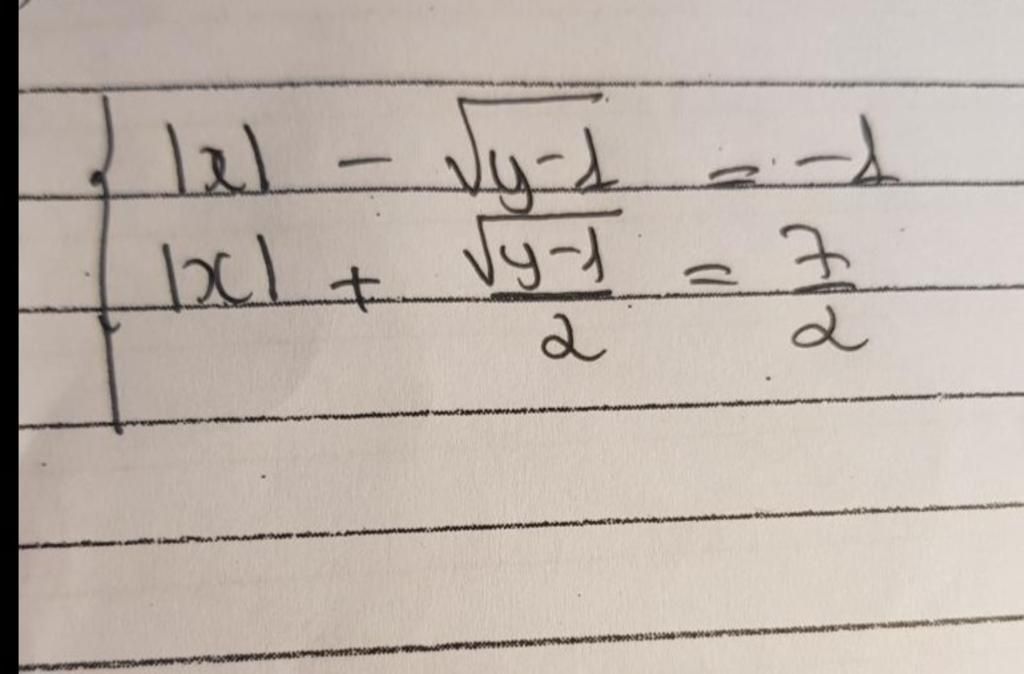 |x| - √(y-1) = -1
|x| + √(y-1)/2 = 7/2